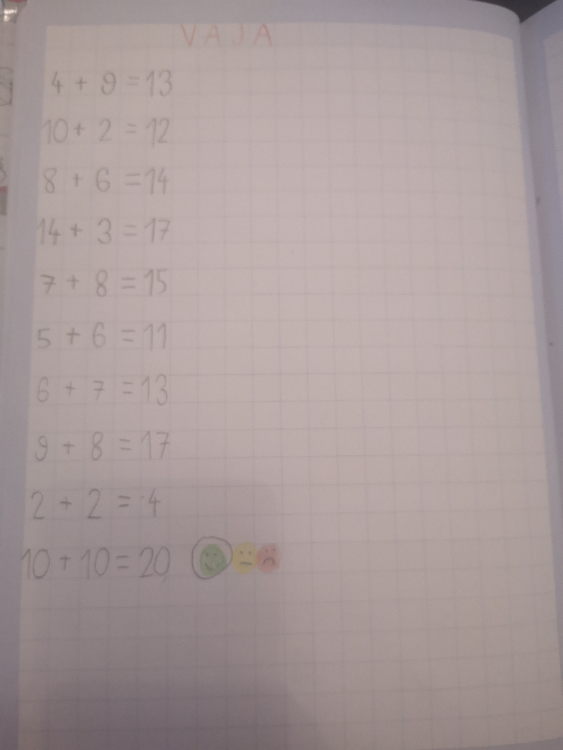 VAJA
4 + 9 = 13
10 + 2 = 12
8 + 6 = 14
14 + 3 = 17
7 + 8 = 15
5 + 6 = 11
6 + 7 = 13
9 + 8 = 17
2 + 2 = 4
10 + 10 = 20